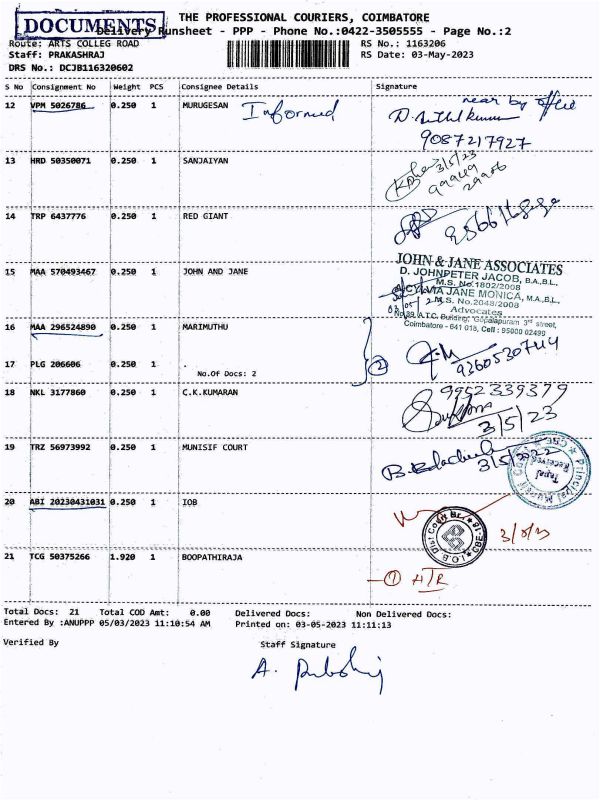 DOCUMENTS
THE PROFESSIONAL COURIERS, COIMBATORE
Delivery Runsheet - PPP - Phone No.:0422-3505555 - Page No.:2
Route: ARTS COLLEG ROAD RS No.: 1163206
Staff: PRAKASHRAJ RS Date: 03-May-2023
DRS No.: DCJB116320602
S No Consignment No Weight PCS Consignee Details Signature
12 VPM 5026786 0.250 1 MURUGESAN Informed near by office
9087217927
13 HRD 50350071 0.250 1 SANJAIYAN 3/5/23
14 TRP 6437776 0.250 1 RED GIANT
15 MAA 570493467 0.250 1 JOHN AND JANE
JOHN & JANE ASSOCIATES
D. JOHNPETER JACOB, B.A.,B.L.,
M.S. No.1802/2008
JANE MONICA, M.A.,B.L.,
M.S. No.2048/2008
Advocates
No.39, A.T.C. Building, Gopalapuram 3rd street,
Coimbatore - 641 018, Cell : 95000 02499
16 MAA 296524890 0.250 1 MARIMUTHU
2 9360530744
17 PLG 206606 0.250 1 .
No.Of Docs: 2
18 NKL 3177860 0.250 1 C.K.KUMARAN 9952339379
3/5/23
19 TRZ 56973992 0.250 1 MUNISIF COURT
Tapal Received
20 ABI 20230431031 0.250 1 IOB
21 TCG 50375266 1.920 1 BOOPATHIRAJA
1
Total Docs: 21 Total COD Amt: 0.00 Delivered Docs: Non Delivered Docs:
Entered By :ANUPPP 05/03/2023 11:10:54 AM Printed on: 03-05-2023 11:11:13
Verified By Staff Signature